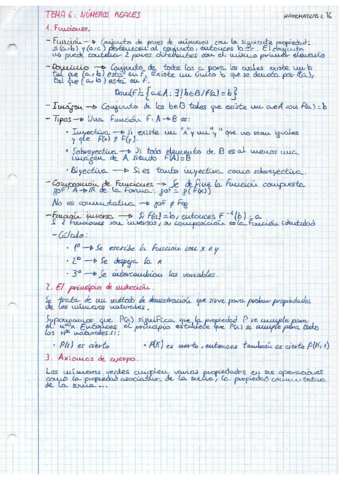 TEMA 6. NÚMEROS REALES
MATEMÁTICAS I
1. Funciones.
- Función → Conjunto de pares de números con la siguiente propiedad:
si (a,b) y (a,c) pertenecen al conjunto; entonces b=c. El conjunto
no puede contener 2 pares diferentes con el mismo primer elemento
- Dominio → Conjunto de todos los a para los cuales existe un b
tal que (a,b) está en F. Existe un único b que se denota por f(a),
tal que (a,b) está en F.
Dom(F) = {a∈A : ∃ b∈B / F(a) = b}
- Imagen → Conjunto de los b∈B tales que existe un a∈A con F(a) = b
- Tipos → Una Función F: A → B es:
· Inyectiva → Si existe un "x" y un "y" que no sean iguales
y que F(x) ≠ F(y).
· Sobreyectiva → Si todo elemento de B es al menos una
imagen de A siendo F(A) = B
· Biyectiva → Si es tanto inyectiva como sobreyectiva.
- Composición de Funciones → Se define la función compuesta
gof: A → de la forma: gof = g(F(x))
No es conmutativa → gof ≠ fog
- Función inversa → Si F(a) = b, entonces F⁻¹(b) = a
Si 2 Funciones son inversas, su composición es la Función identidad
- Cálculo:
· 1º → Se escribe la Función con x e y
· 2º → Se despeja la x
· 3º → Se intercambian las variables.
2. El principio de inducción.
Se trata de un método de demostración que sirve para probar propiedades
de los números naturales.
Supongamos que P(x) significa que la propiedad P se cumple para
el nº x. Entonces el principio establece que P(x) se cumple para todos
los nos naturales si:
· P(1) es cierto · P(k) es cierto, entonces también es cierto P(k+1)
3. Axiomas de cuerpo.
Los números reales cumplen varias propiedades en sus operaciones
como la propiedad asociativa de la suma, la propiedad conmutativa
de la suma...